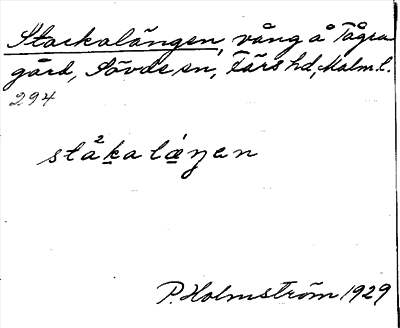 Stackalängen, vång å Tågra
gård, Sövde sn, Färs hd, Malm. l.
294
stå²ka læ´ŋen
P. Holmström 1929